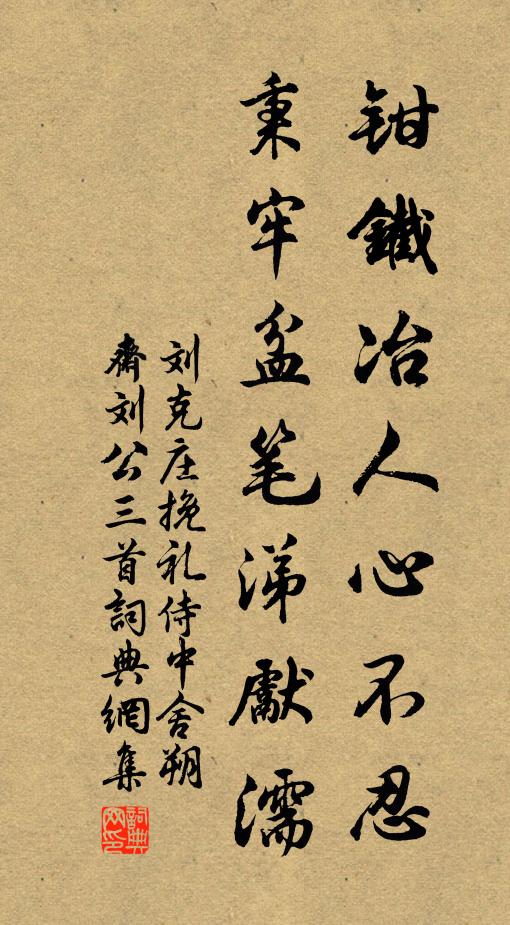 钳鐵冶人心不忍
秉牢盆笔涕獻濡
刘克庄挽礼侍中舍朔
齋刘公三首詞典網集
詞典网印